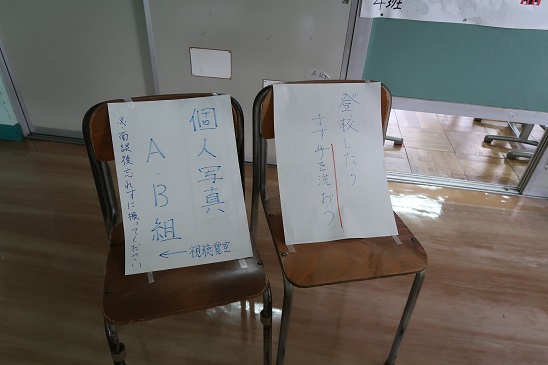 個人写真
A・B組
←視聴覚室
※面談後忘れずに撮ってください
登校したら
まず手を洗おう
4班